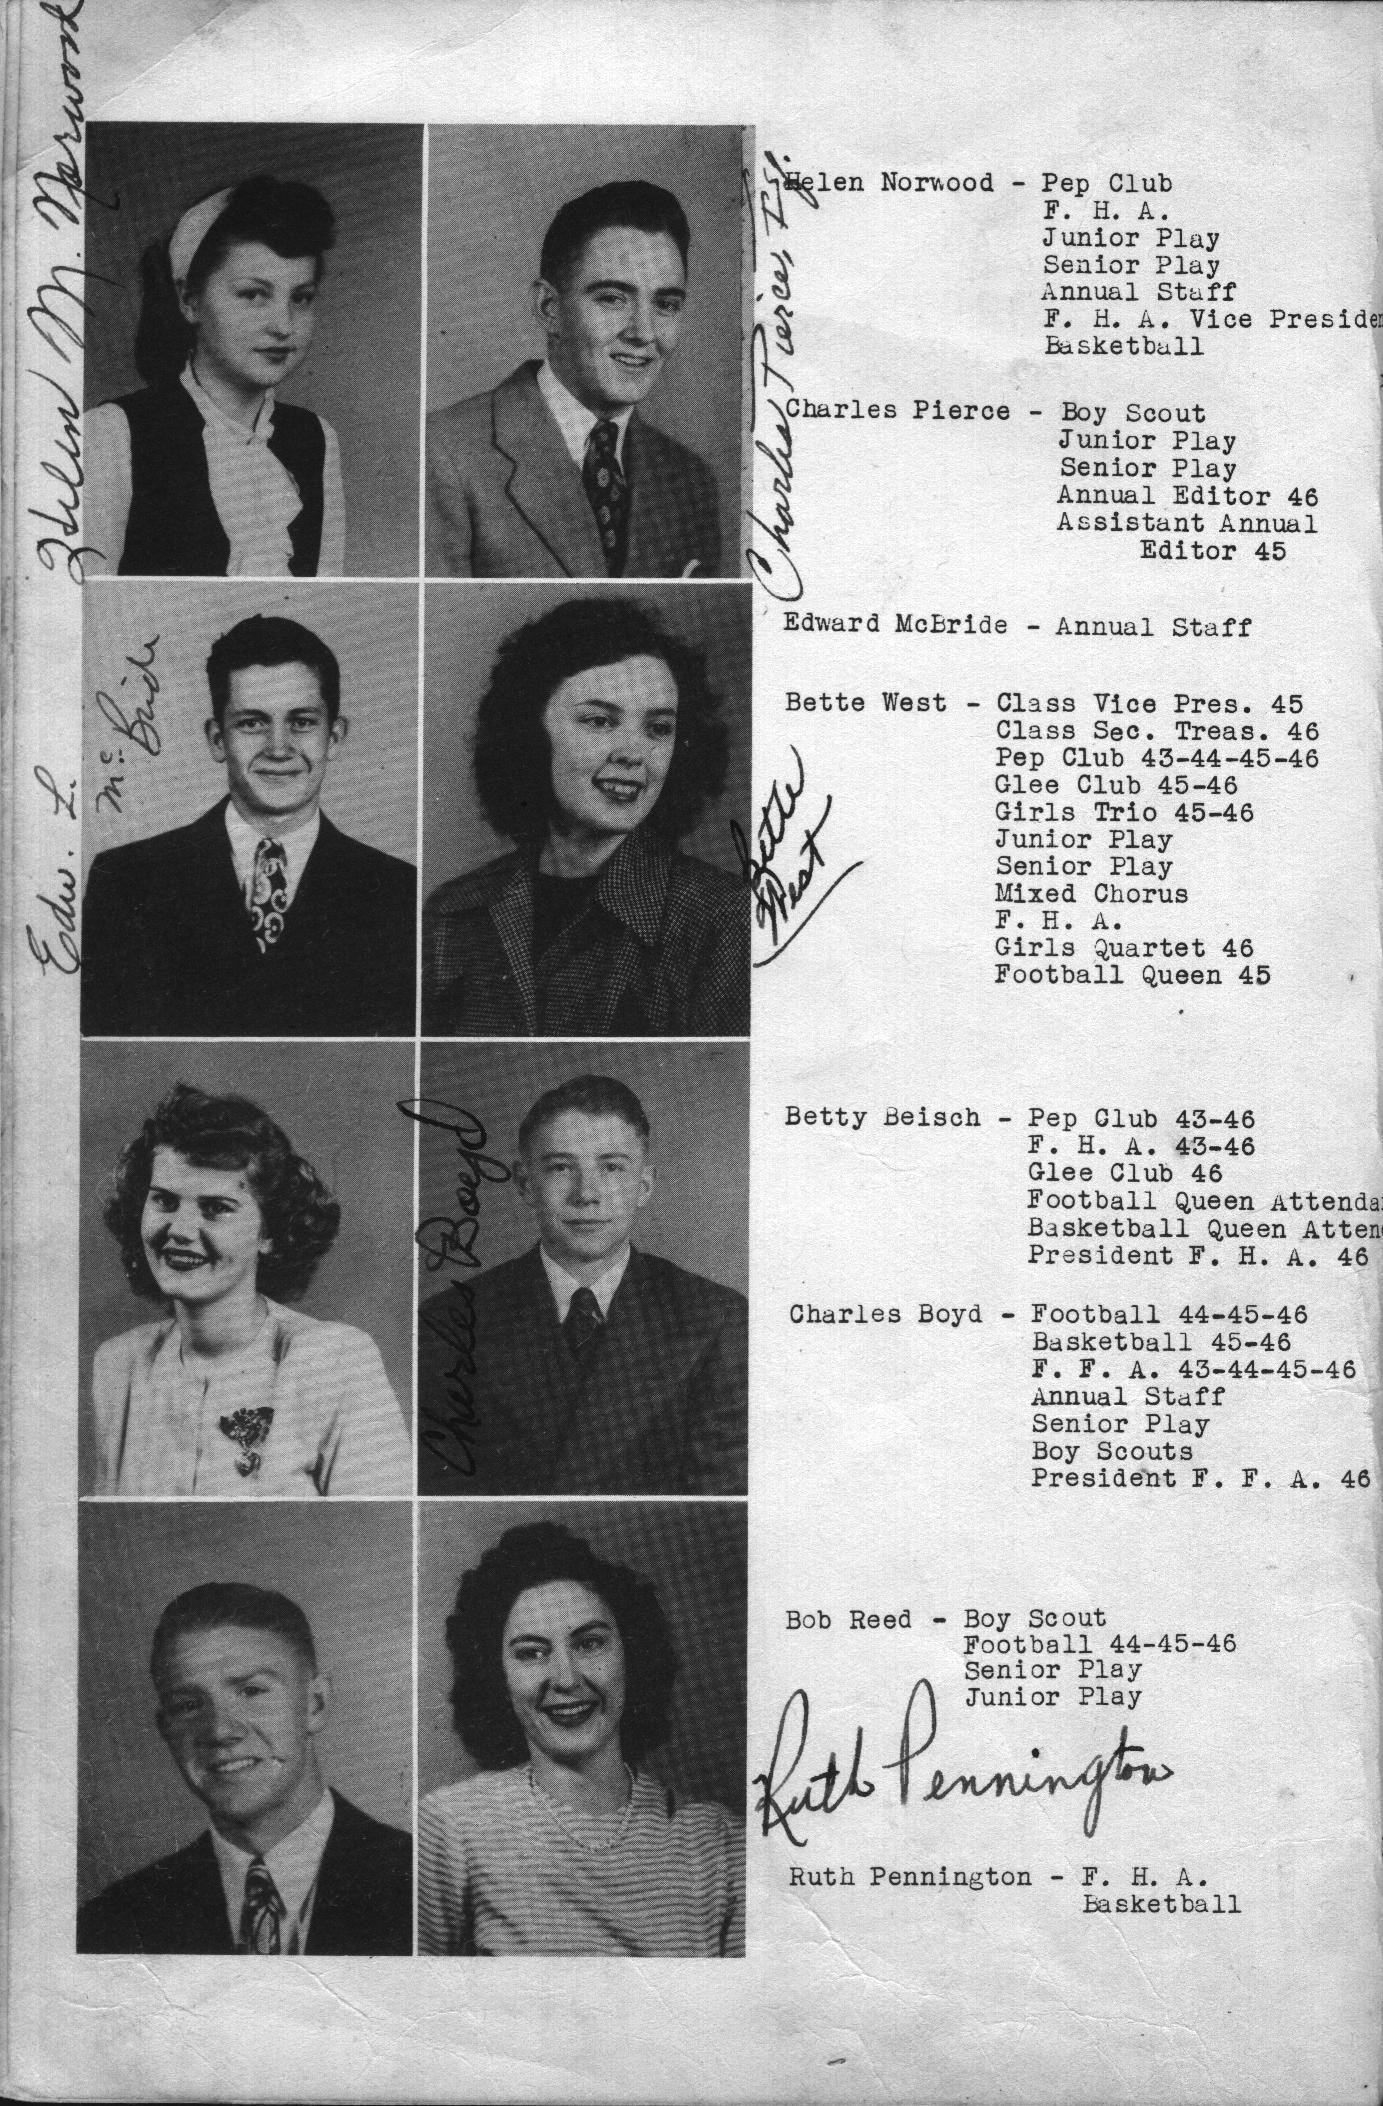 Helen M. Norwood
Charles Pierce, Esq.
Helen Norwood - Pep Club
F. H. A.
Junior Play
Senior Play
Annual Staff
F. H. A. Vice Presiden
Basketball
Charles Pierce - Boy Scout
Junior Play
Senior Play
Annual Editor 46
Assistant Annual
Editor 45
Edw. L. McBride
Edward McBride - Annual Staff
Bette West
Bette West - Class Vice Pres. 45
Class Sec. Treas. 46
Pep Club 43-44-45-46
Glee Club 45-46
Girls Trio 45-46
Junior Play
Senior Play
Mixed Chorus
F. H. A.
Girls Quartet 46
Football Queen 45
Betty Beisch - Pep Club 43-46
F. H. A. 43-46
Glee Club 46
Football Queen Attenda
Basketball Queen Atten
President F. H. A. 46
Charles Boyd
Charles Boyd - Football 44-45-46
Basketball 45-46
F. F. A. 43-44-45-46
Annual Staff
Senior Play
Boy Scouts
President F. F. A. 46
Bob Reed - Boy Scout
Football 44-45-46
Senior Play
Junior Play
Ruth Pennington
Ruth Pennington - F. H. A.
Basketball